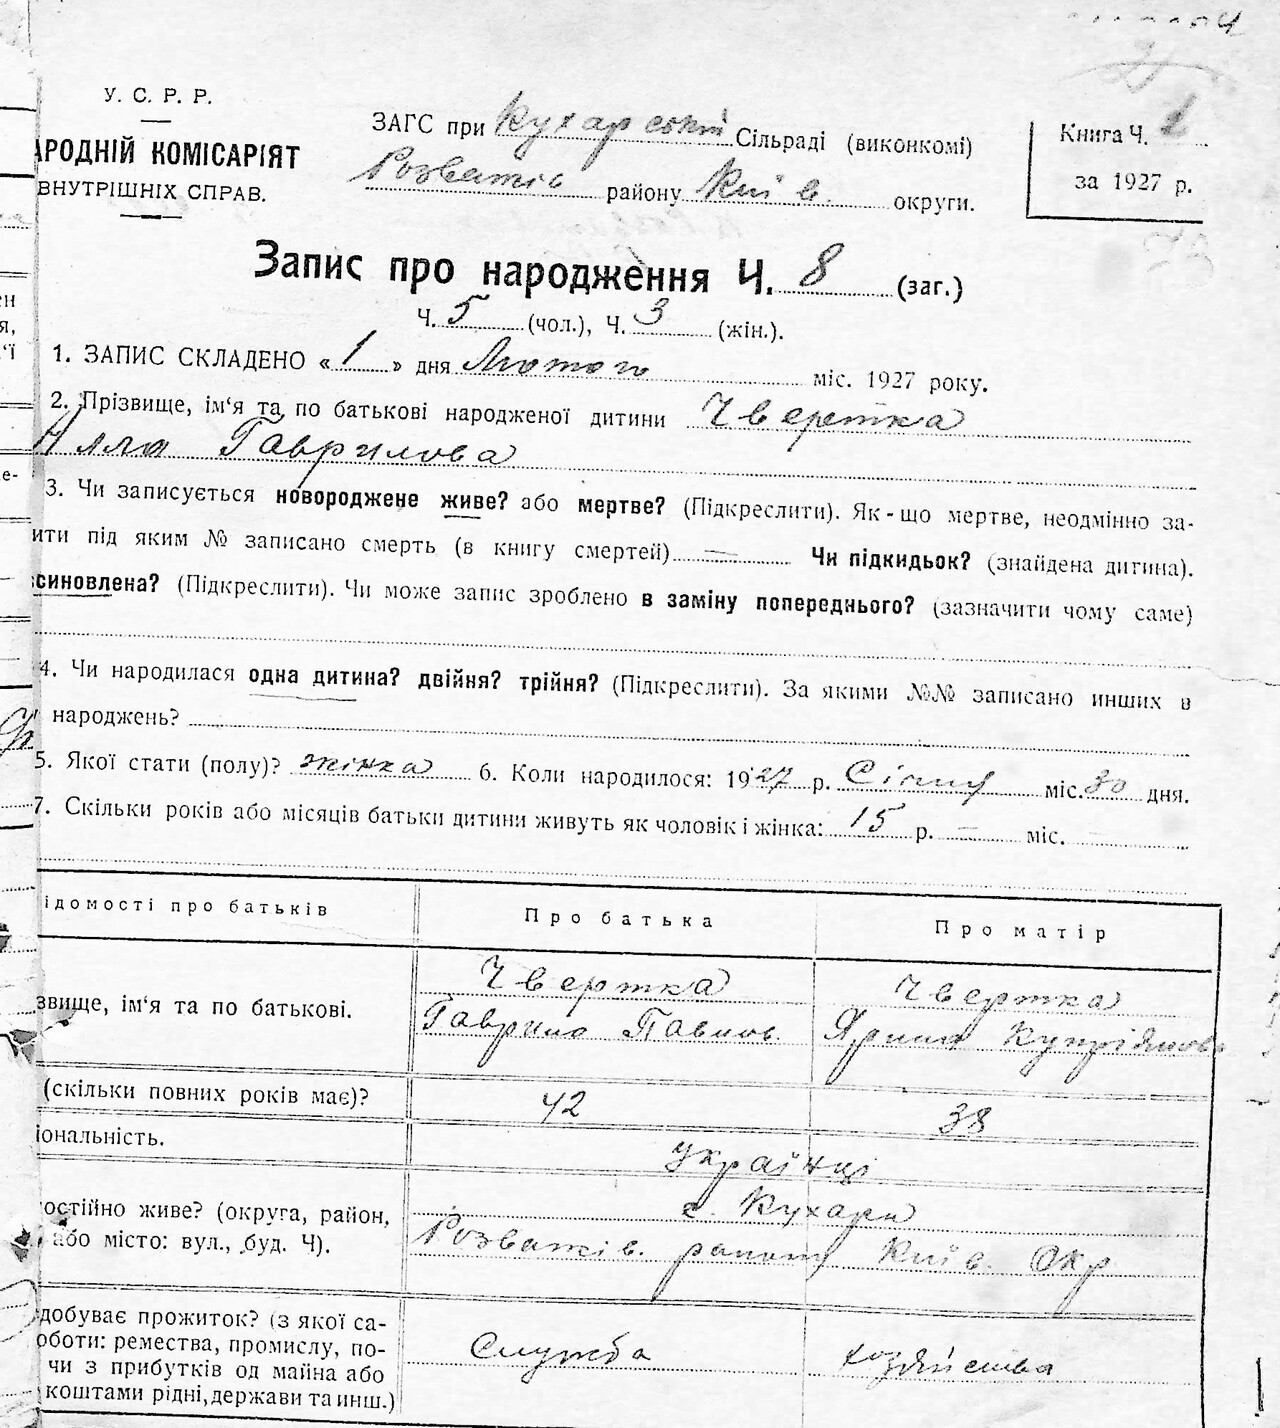 У. С. Р. Р.
АРОДНІЙ КОМІСАРІЯТ
ВНУТРІШНІХ СПРАВ.
ЗАГС при Кухарській Сільраді (виконкомі)
Розважів району Київ. округи.
Книга Ч. 1
за 1927 р.
Запис про народження Ч. 8 (заг.)
Ч. 5 (чол.), Ч. 3 (жін.).
1. ЗАПИС СКЛАДЕНО «1» дня Лютого міс. 1927 року.
2. Прізвище, ім‘я та по батькові народженої дитини Чвертка
Алла Гаврилова
3. Чи записується новороджене живе? або мертве? (Підкреслити). Як-що мертве, неодмінно за-
ити під яким № записано смерть (в книгу смертей) — Чи підкидьок? (знайдена дитина).
синовлена? (Підкреслити). Чи може запис зроблено в заміну попереднього? (зазначити чому саме)
4. Чи народилася одна дитина? двійня? трійня? (Підкреслити). За якими №№ записано инших в
народжень?
5. Якої стати (полу)? жінка 6. Коли народилося: 1927 р. Січня міс. 30 дня.
7. Скільки років або місяців батьки дитини живуть як чоловік і жінка: 15 р. — міс.
ідомості про батьків
Про батька
Про матір
звище, ім‘я та по батькові.
Чвертка
Гаврило Павлов.
Чвертка
Ярина Купріянов
(скільки повних років має)?
42
38
іональність.
Українці
остійно живе? (округа, район,
або місто: вул., буд. Ч).
с. Кухари
Розважів. району Київ. Окр
добуває прожиток? (з якої са-
оботи: ремества, промислу, по-
чи з прибутків од майна або
коштами рідні, держави та инш.)
Служба
хозяйства